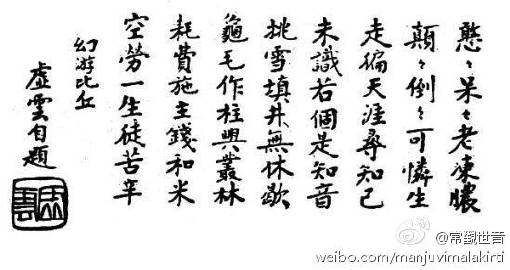 憨々呆々老凍膿
顛々倒々可憐生
走徧天涯尋知己
未識若個是知音
挑雪填井無休歇
龜毛作柱興叢林
耗費施主錢和米
空勞一生徒苦辛
幻游比丘
虛雲自題
虛雲
@常觀世音
weibo.com/manjuvimalakirti